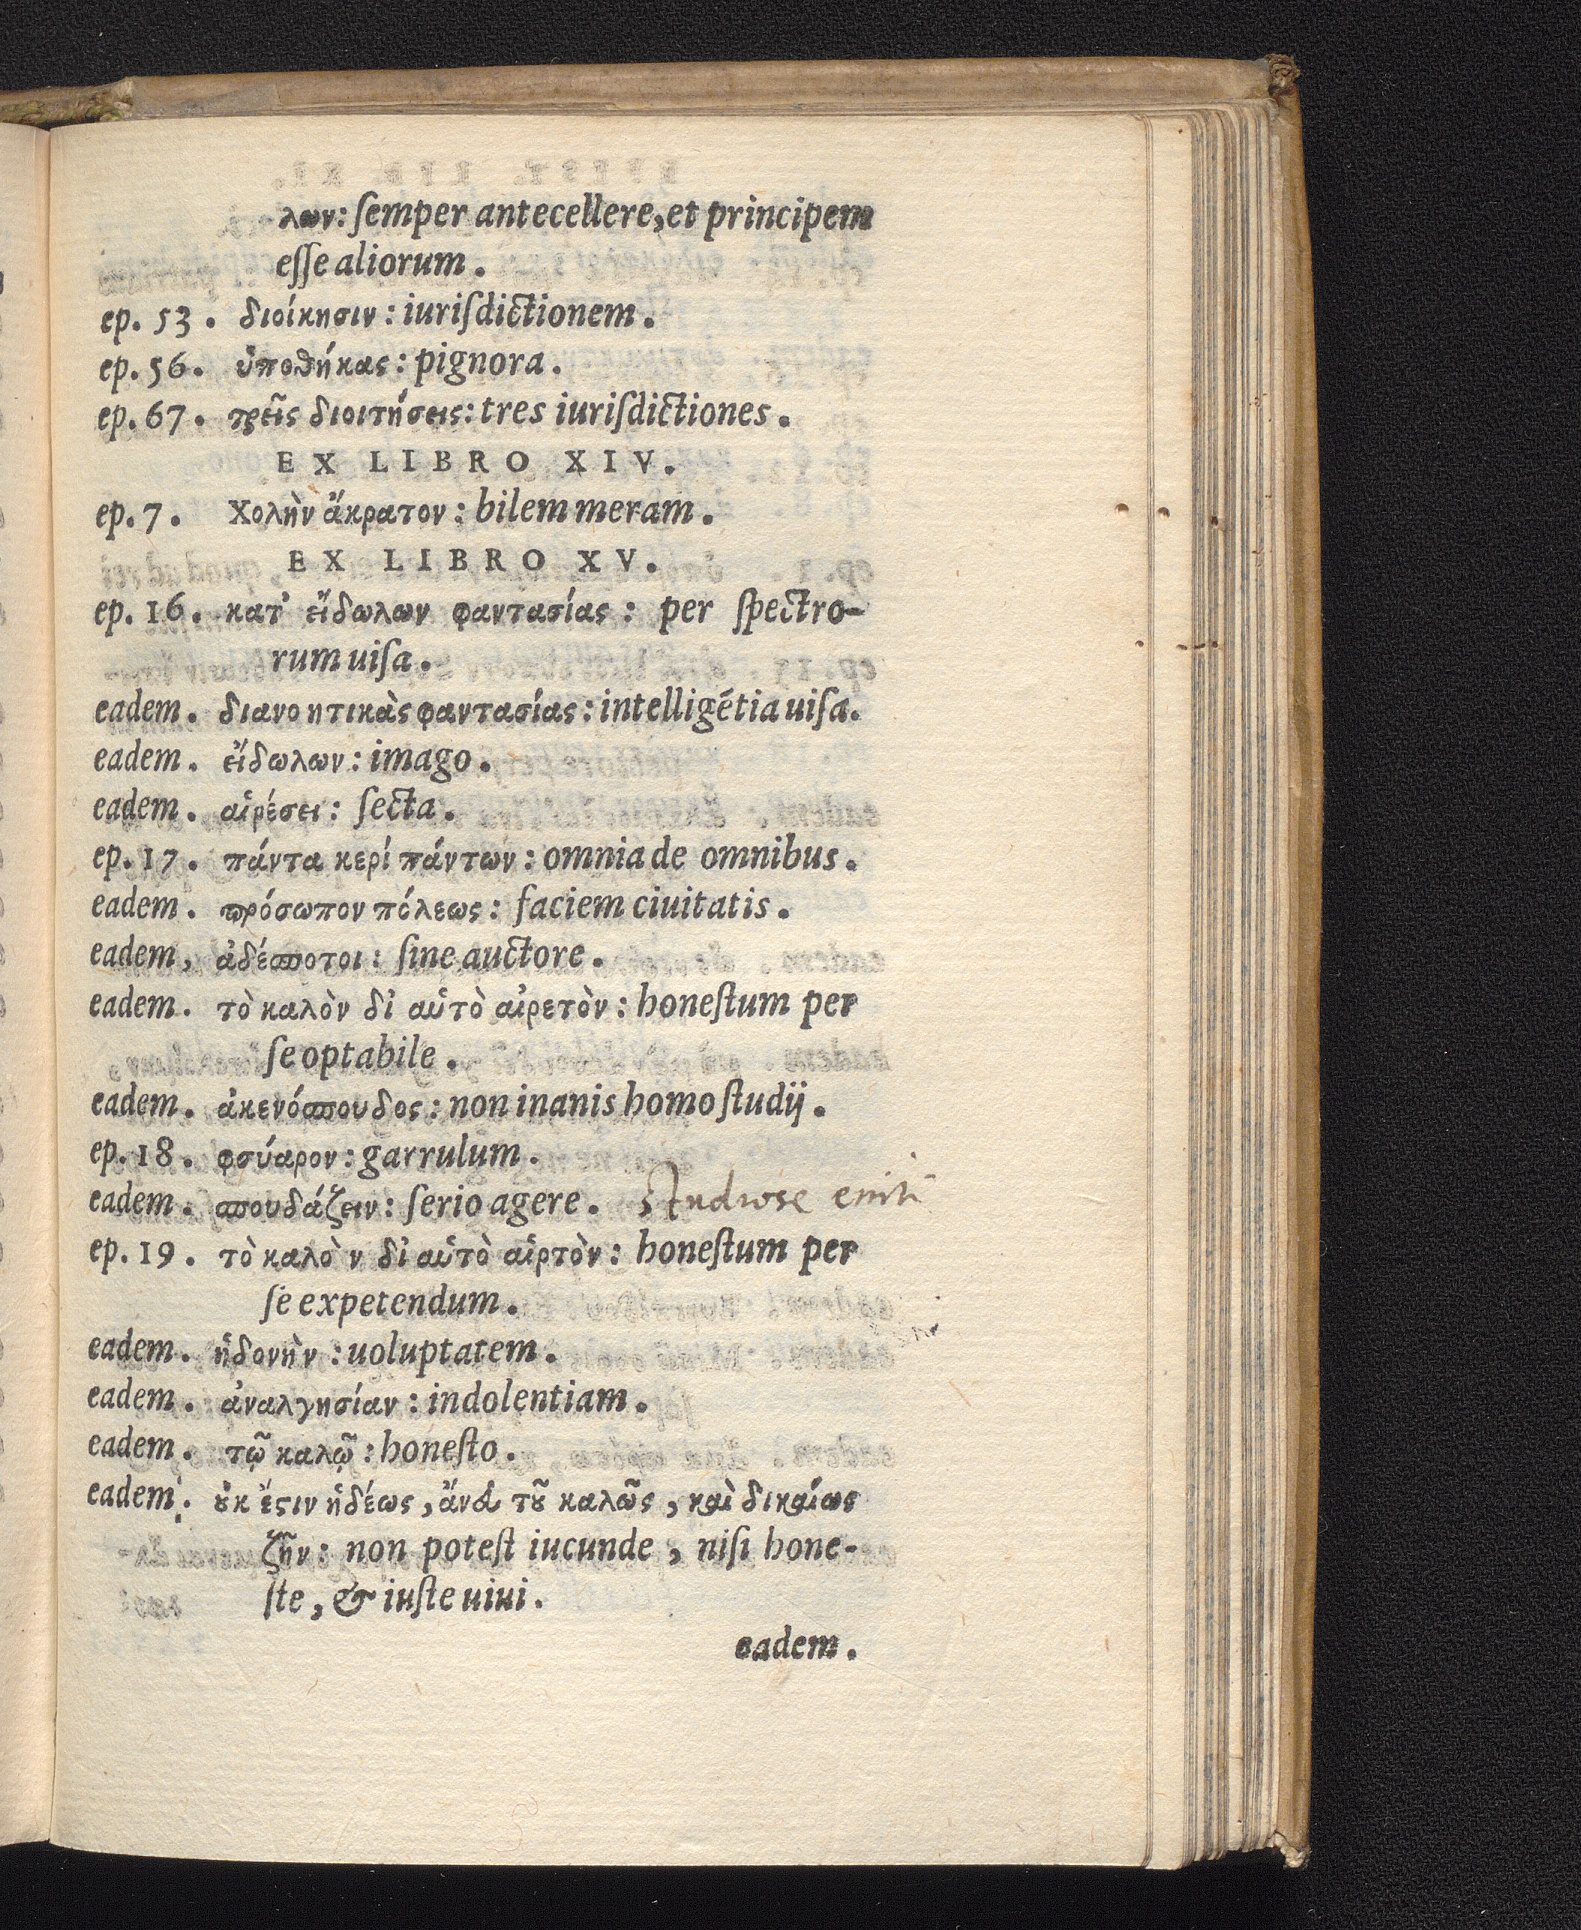 λων: ſemper antecellere, et principem
eſſe aliorum.
ep. 53. διοίκησιν: iuriſdictionem.
ep. 56. ὑποθήκας: pignora.
ep. 67. τρεῖς διοιτήσεις: tres iuriſdictiones.
EX LIBRO XIV.
ep. 7. Χολὴν ἄκρατον: bilem meram.
EX LIBRO XV.
ep. 16. κατ’ εἴδωλων φαντασίας: per ſpectro-
rum uiſa.
eadem. διανοητικὰς φαντασίας: intelligētia uiſa.
eadem. εἴδωλων: imago.
eadem. αἱρέσει: ſecta.
ep. 17. πάντα κερί πάντων: omnia de omnibus.
eadem. πρόσωπον πόλεως: faciem ciuitatis.
eadem, ἀδέσποτοι: ſine auctore.
eadem. τὸ καλὸν δι’ αὑτὸ αἱρετὸν: honeſtum per
ſe optabile.
eadem. ἀκενόσπουδος: non inanis homo ſtudij.
ep. 18. φσύαρον: garrulum.
eadem. σπουδάζειν: ſerio agere. studiose eniti
ep. 19. τὸ καλὸν δι’ αὑτὸ αἱρτὸν: honeſtum per
ſe expetendum.
eadem. ἡδονὴν: uoluptatem.
eadem. ἀναλγησίαν: indolentiam.
eadem. τῷ καλῷ: honeſto.
eadem. ȣκ ἔϛιν ἡδέως, ἄνευ τȣ͂ καλῶς, καὶ δικαίως
ζῆν: non poteſt iucunde, niſi hone-
ſte, & iuſte uiui.
eadem.